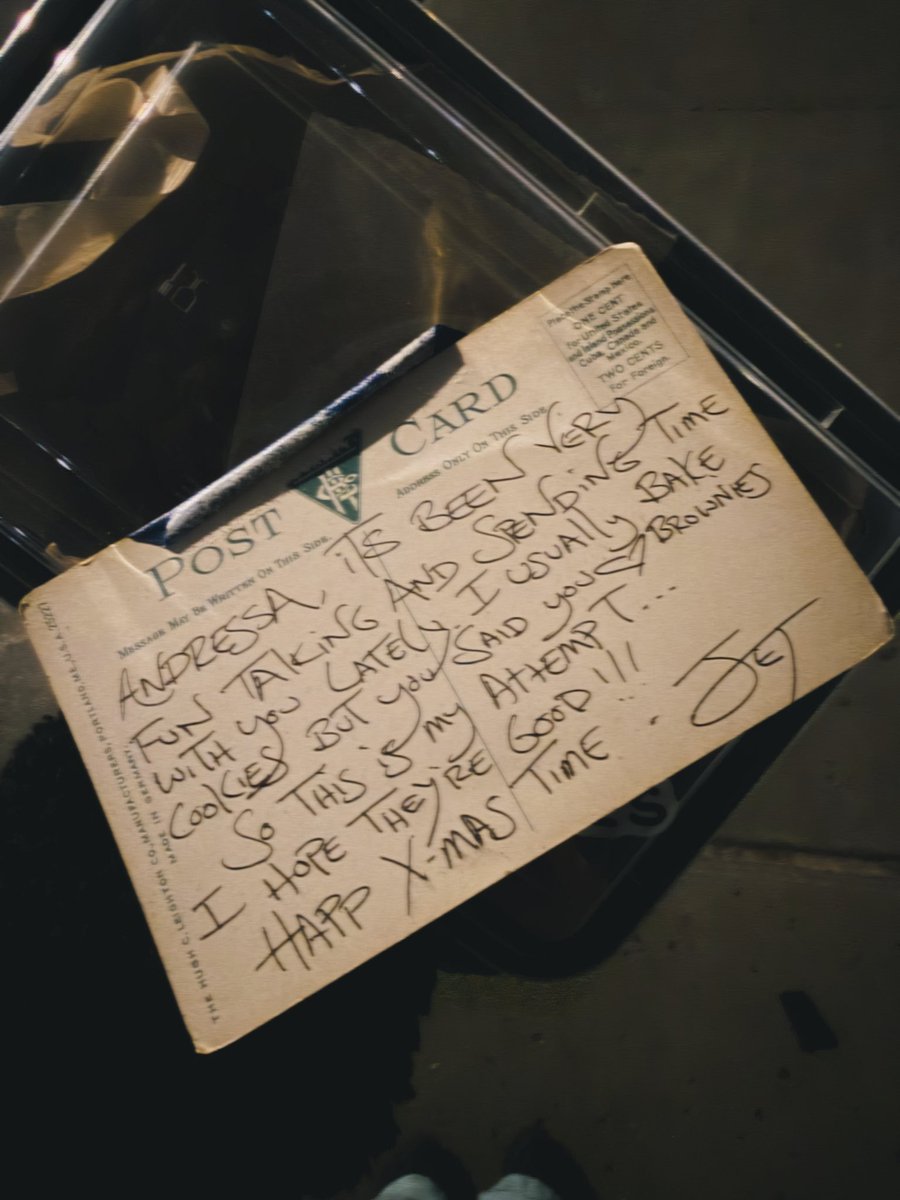 POST CARD
MESSAGE MAY BE WRITTEN ON THIS SIDE.
ADDRESS ONLY ON THIS SIDE.
Place the Stamp here
ONE CENT
for United States
and Island Possessions
Cuba, Canada and
Mexico.
TWO CENTS
For Foreign.
ANDRESSA, iTS BEEN VERY
FUN TALKING AND SENDING TIME
WITH YOU LATELY. I USUALLY BAKE
COOKIES BUT YOU SAID YOU ♡ BROWNIES
SO THIS iS MY ATTEMPT...
I HOPE THEY'RE GOOD!!!
HAPP X-MAS TIME. . JET
THE HUGH C. LEIGHTON CO, MANUFACTURERS, PORTLAND, ME, U.S.A.
MADE IN GERMANY.